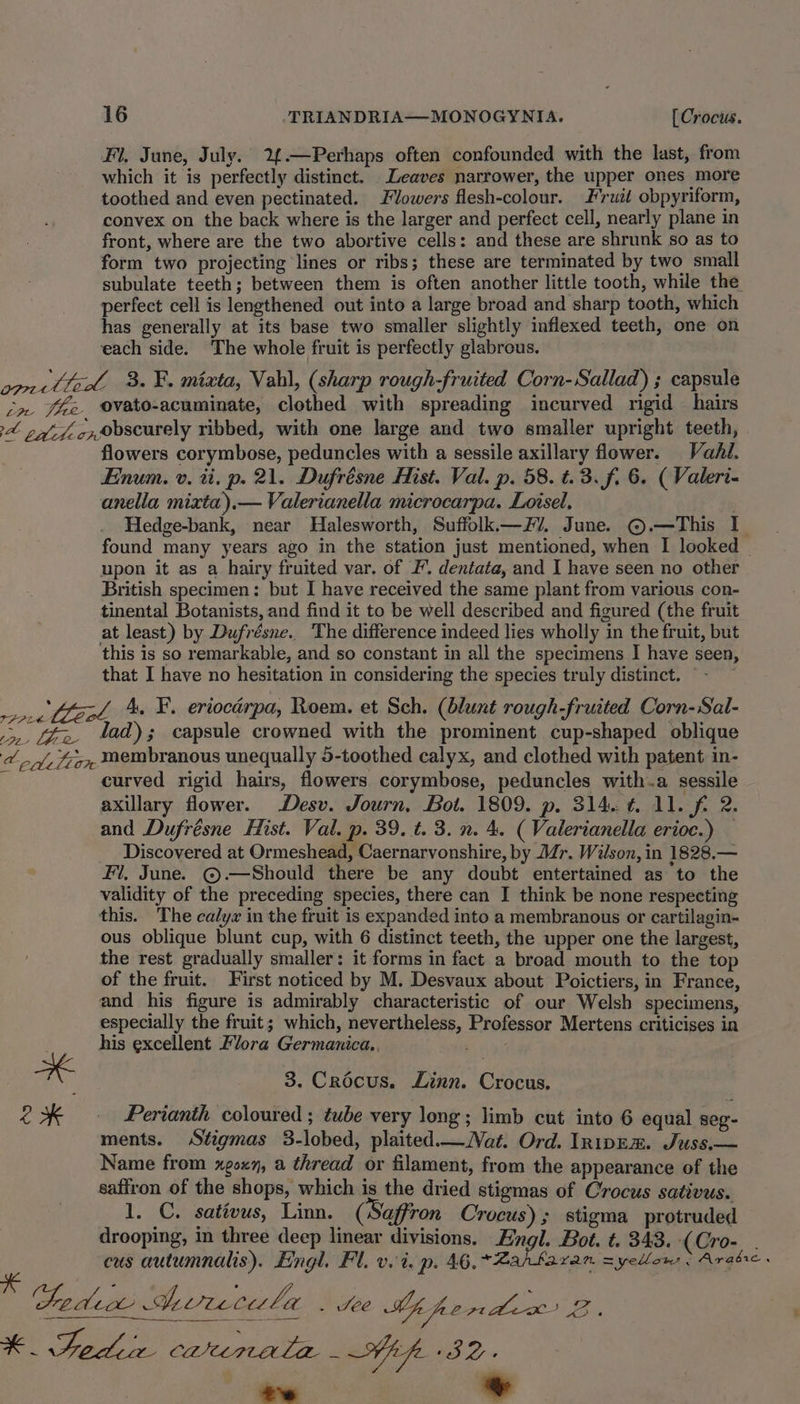 16 TRIANDRIA—MONOGYNIA. [Crocus.
Fl. June, July. ♃.—Perhaps often confounded with the last, from
which it is perfectly distinct. Leaves narrower, the upper ones more
toothed and even pectinated. Flowers flesh-colour. Fruit obpyriform,
convex on the back where is the larger and perfect cell, nearly plane in
front, where are the two abortive cells: and these are shrunk so as to
form two projecting lines or ribs; these are terminated by two small
subulate teeth; between them is often another little tooth, while the
perfect cell is lengthened out into a large broad and sharp tooth, which
has generally at its base two smaller slightly inflexed teeth, one on
each side. The whole fruit is perfectly glabrous.
omitted 3. F. mixta, Vahl, (sharp rough-fruited Corn-Sallad); capsule
in the ovato-acuminate, clothed with spreading incurved rigid hairs
2d edition obscurely ribbed, with one large and two smaller upright teeth,
flowers corymbose, peduncles with a sessile axillary flower. Vahl.
Enum. v. ii. p. 21. Dufrésne Hist. Val. p. 58. t. 3. f. 6. (Valeri-
anella mixta).—Valerianella microcarpa. Loisel.
Hedge-bank, near Halesworth, Suffolk.—Fl. June. ☉.—This I
found many years ago in the station just mentioned, when I looked
upon it as a hairy fruited var. of F. dentata, and I have seen no other
British specimen: but I have received the same plant from various con-
tinental Botanists, and find it to be well described and figured (the fruit
at least) by Dufrésne. The difference indeed lies wholly in the fruit, but
this is so remarkable, and so constant in all the specimens I have seen,
that I have no hesitation in considering the species truly distinct.
omitted 4. F. eriocárpa, Roem. et Sch. (blunt rough-fruited Corn-Sal-
in the lad); capsule crowned with the prominent cup-shaped oblique
2d edition membranous unequally 5-toothed calyx, and clothed with patent in-
curved rigid hairs, flowers corymbose, peduncles with a sessile
axillary flower. Desv. Journ. Bot. 1809. p. 314. t. 11. f. 2.
and Dufrésne Hist. Val. p. 39. t. 3. n. 4. (Valerianella erioc.)
Discovered at Ormeshead, Caernarvonshire, by Mr. Wilson, in 1828.—
Fl. June. ☉.—Should there be any doubt entertained as to the
validity of the preceding species, there can I think be none respecting
this. The calyx in the fruit is expanded into a membranous or cartilagin-
ous oblique blunt cup, with 6 distinct teeth, the upper one the largest,
the rest gradually smaller: it forms in fact a broad mouth to the top
of the fruit. First noticed by M. Desvaux about Poictiers, in France,
and his figure is admirably characteristic of our Welsh specimens,
especially the fruit; which, nevertheless, Professor Mertens criticises in
his excellent Flora Germanica.
*
3. Crócus. Linn. Crocus.
2* Perianth coloured; tube very long; limb cut into 6 equal seg-
ments. Stigmas 3-lobed, plaited.—Nat. Ord. Irideæ. Juss.—
Name from κροκη, a thread or filament, from the appearance of the
saffron of the shops, which is the dried stigmas of Crocus sativus.
1. C. satívus, Linn. (Saffron Crocus); stigma protruded
drooping, in three deep linear divisions. Engl. Bot. t. 343. (Cro-
cus autumnalis). Engl. Fl. v. i. p. 46. *Zahfaran = yellow, Arabic.
* Fedia Auricula. See Appendix 2.
*. Fedia carinata - App. 32.